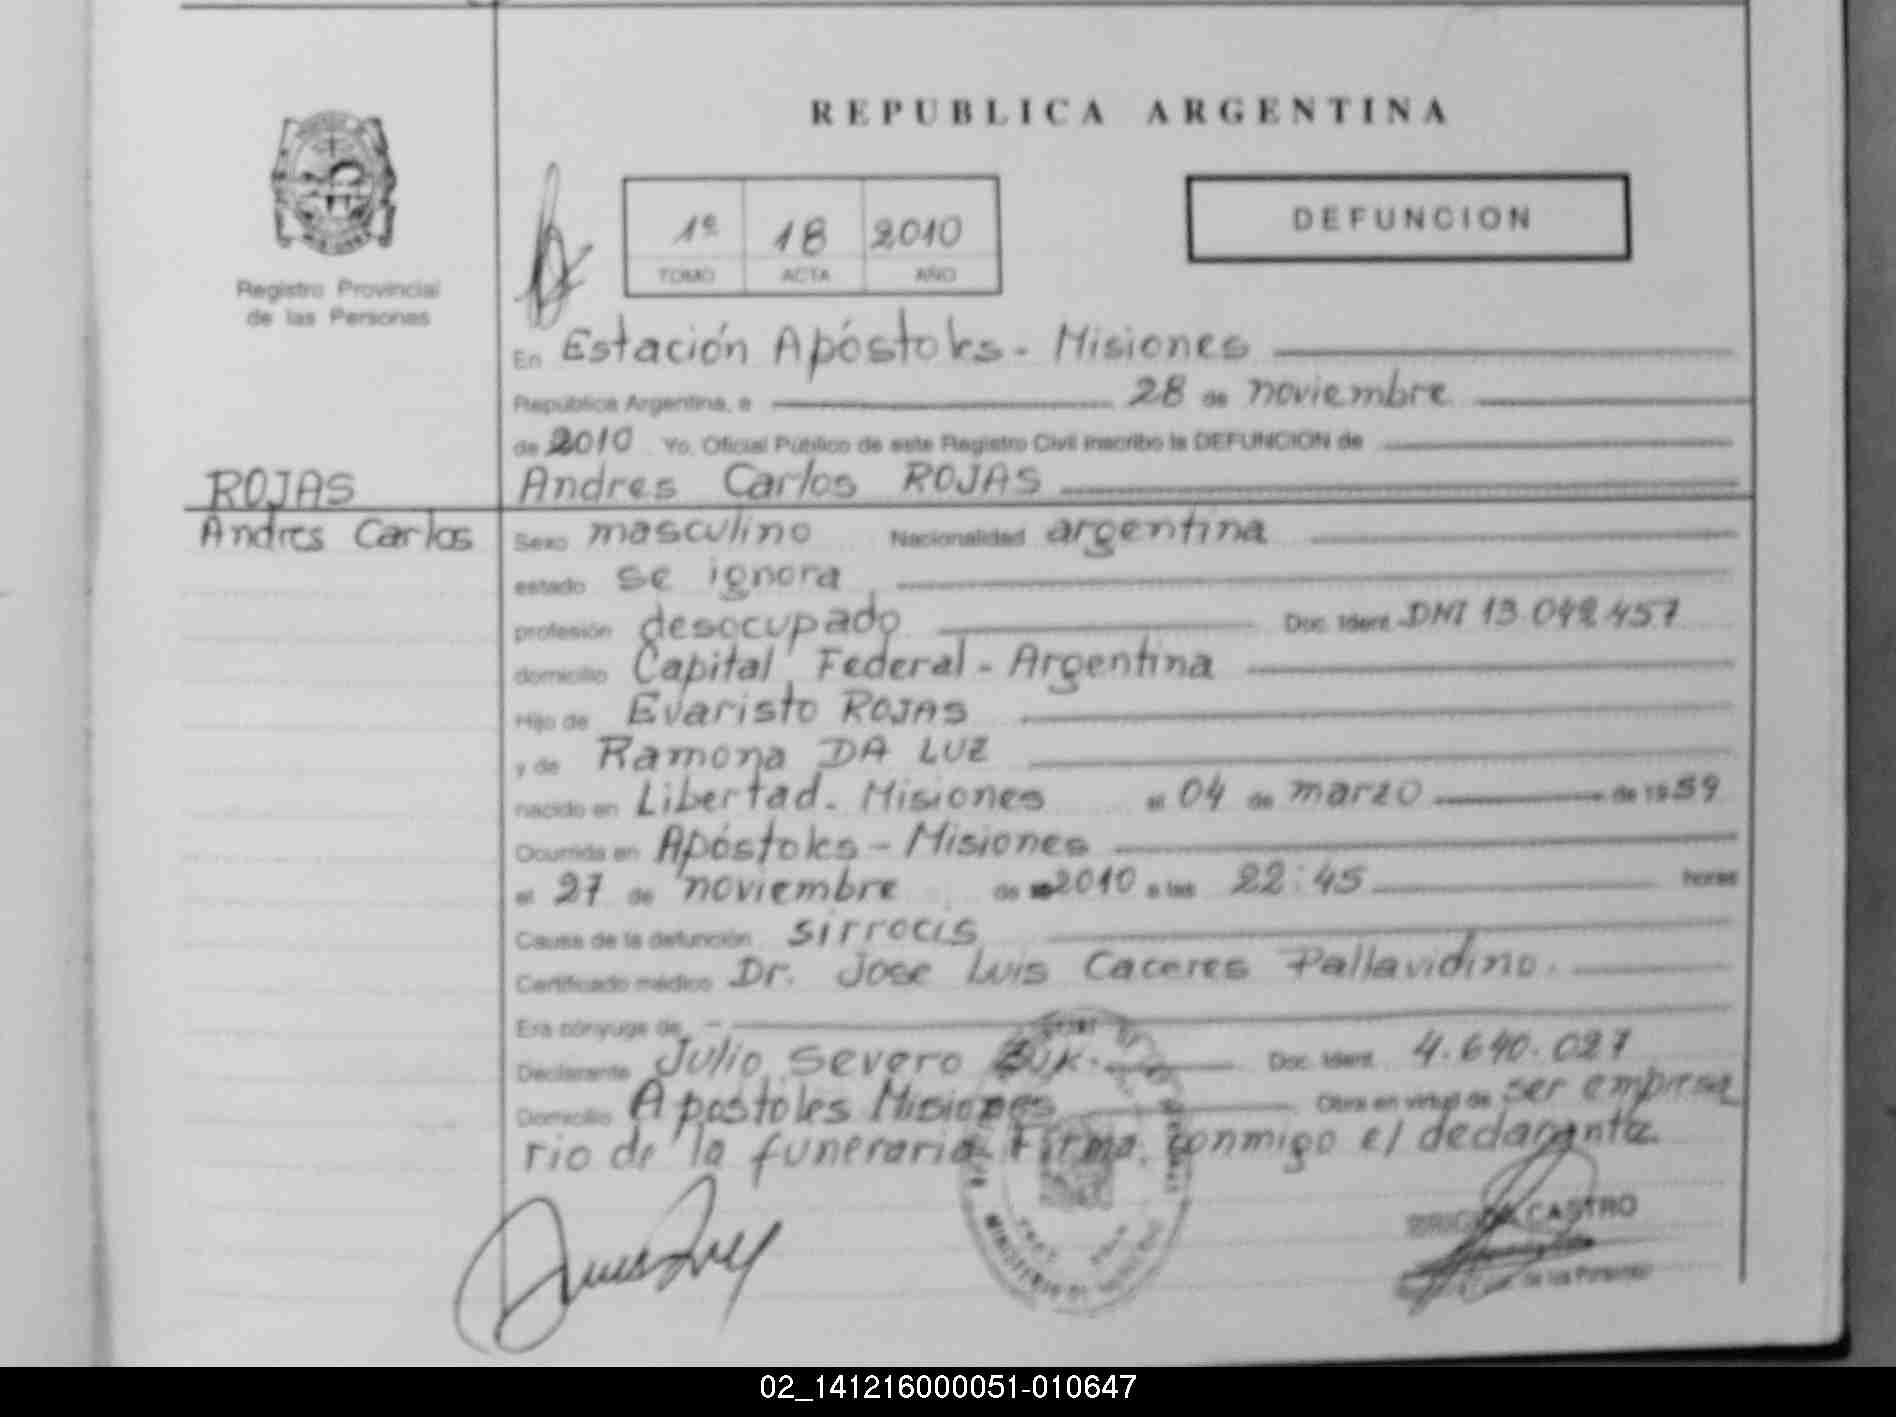 REPUBLICA ARGENTINA
1º 18 2010
TOMO ACTA AÑO
DEFUNCION
Registro Provincial
de las Personas
En Estación Apóstoles - Misiones
República Argentina, a 28 de noviembre
de 2010 Yo, Oficial Público de este Registro Civil inscribo la DEFUNCION de
ROJAS
Andres Carlos ROJAS
Andres Carlos
Sexo masculino Nacionalidad argentina
estado se ignora
profesión desocupado Doc. Ident. DNI 13.042.457
domicilio Capital Federal - Argentina
Hijo de Evaristo ROJAS
y de Ramona DA LUZ
nacido en Libertad - Misiones el 04 de marzo de 1959
Ocurrida en Apóstoles - Misiones
el 27 de noviembre de 2010 a las 22:45 horas
Causa de la defunción sirrocis
Certificado médico Dr. Jose Luis Caceres Pallavidino.
Era cónyuge de -
Declarante Julio Severo BUK. Doc. Ident. 4.640.027
Domicilio Apostoles Misiones Obra en virtud de ser empresa
rio de la funeraria Firma conmigo el declarante.
CASTRO
de las Personas
MINISTERIO DE
02_141216000051-010647